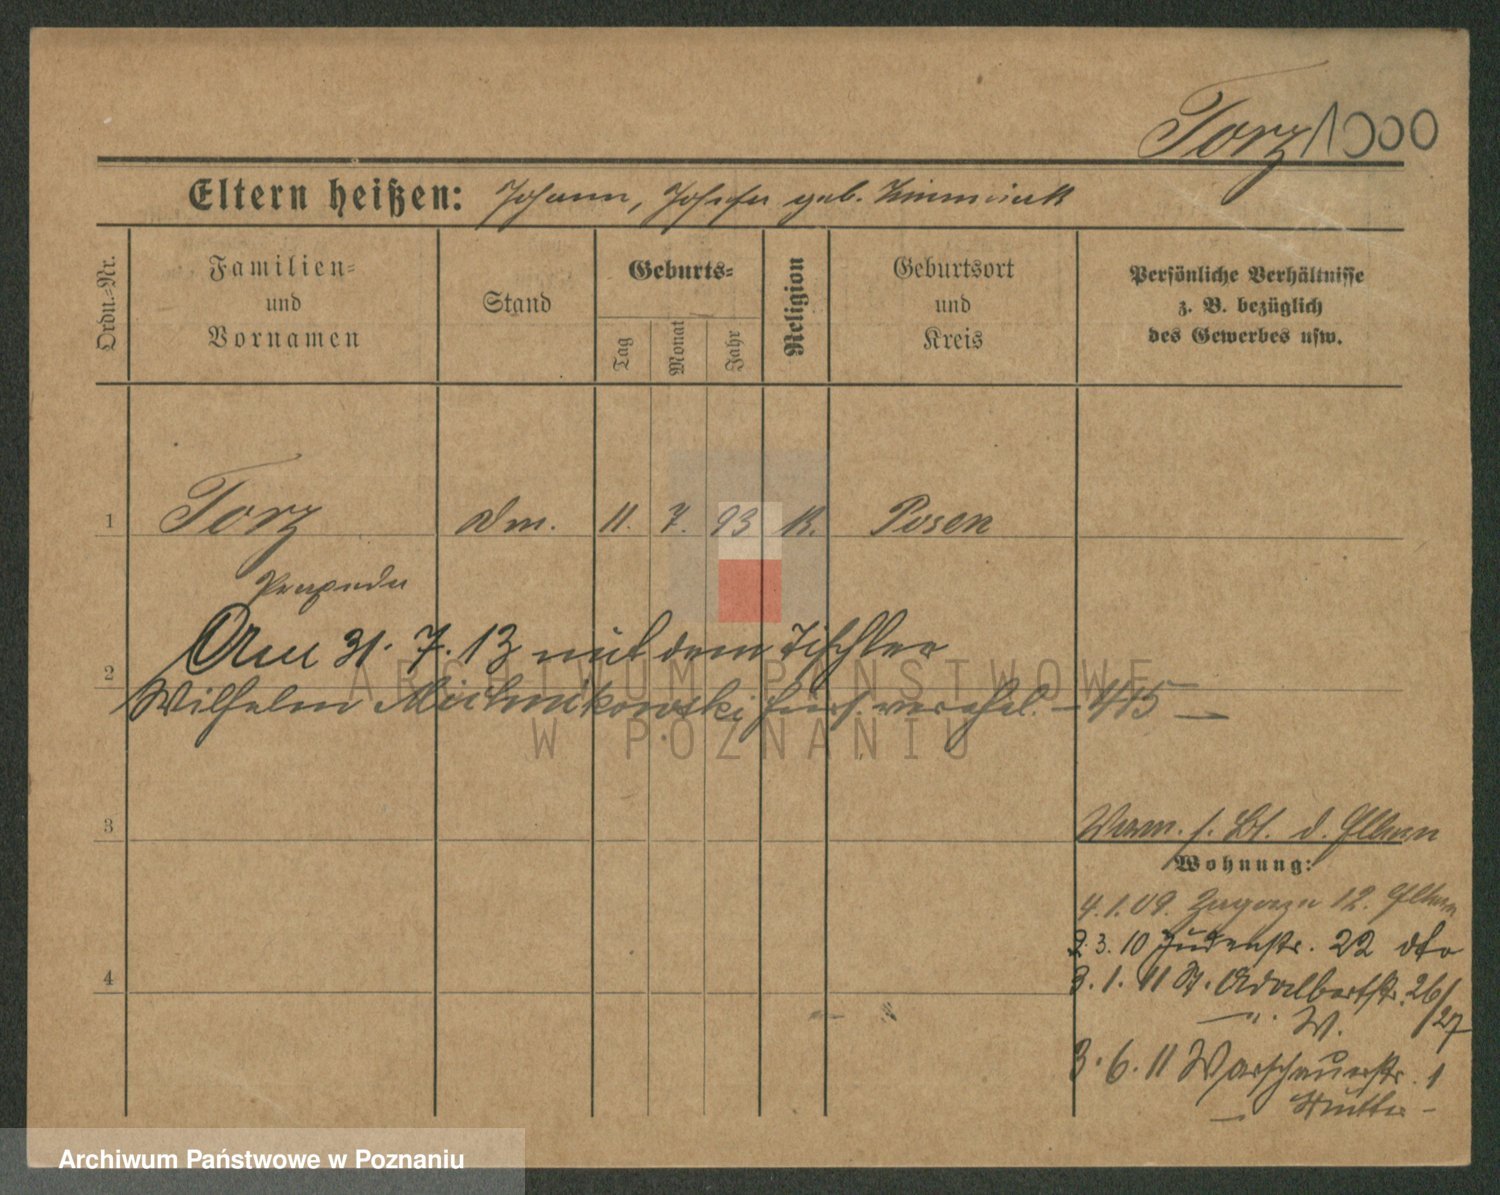 Torz 1000
Eltern heißen: Johann, Josefa geb.
Ordn.-Nr.
Familien-
und
Vornamen
Stand
Geburts-
Tag
Monat
Jahr
Religion
Geburtsort
und
Kreis
Persönliche Verhältnisse
z. B. bezüglich
des Gewerbes usw.
1 Torz 11. 7. 93 K. Posen
Praxeda
Am 31. 7. 13 mit dem Tischler
2
Wilhelm hier verehel. — 415 —
3
Wohnung:
4.1.09. Zagorze 12. Eltern
2.3.10 Judenstr. 22 dto
4
3.1.11 St. Adalbertstr. 26/
— " W. /27
3.6.11 Warschauerstr. 1
— Mutter —
ARCHIWUM PAŃSTWOWE
W POZNANIU
Archiwum Państwowe w Poznaniu